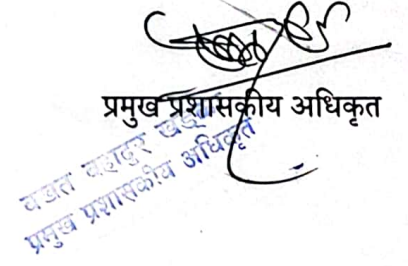 प्रमुख प्रशासकीय अधिकृत
वखत बहादुर खड्का
प्रमुख प्रशासकीय अधिकृत